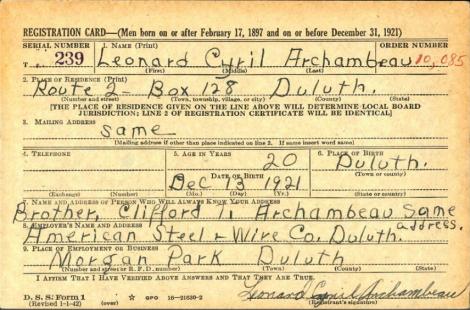 REGISTRATION CARD—(Men born on or after February 17, 1897 and on or before December 31, 1921)
SERIAL NUMBER 1. NAME (Print) ORDER NUMBER
T 239 Leonard Cyril Archambeau 10,085
(First) (Middle) (Last)
2. PLACE OF RESIDENCE (Print)
Route 2- Box 128 Duluth.
(Number and street) (Town, township, village, or city) (County) (State)
[THE PLACE OF RESIDENCE GIVEN ON THE LINE ABOVE WILL DETERMINE LOCAL BOARD
JURISDICTION; LINE 2 OF REGISTRATION CERTIFICATE WILL BE IDENTICAL]
3. MAILING ADDRESS
same
(Mailing address if other than place indicated on line 2. If same insert word same)
4. TELEPHONE 5. AGE IN YEARS 6. PLACE OF BIRTH
20 Duluth.
DATE OF BIRTH (Town or county)
Dec 13 1921
(Exchange) (Number) (Mo.) (Day) (Yr.) (State or country)
7. NAME AND ADDRESS OF PERSON WHO WILL ALWAYS KNOW YOUR ADDRESS
Brother, Clifford T. Archambeau same address.
8. EMPLOYER'S NAME AND ADDRESS
American Steel + Wire Co. Duluth.
9. PLACE OF EMPLOYMENT OR BUSINESS
Morgan Park Duluth
(Number and street or R. F. D. number) (Town) (County) (State)
I AFFIRM THAT I HAVE VERIFIED ABOVE ANSWERS AND THAT THEY ARE TRUE.
D. S. S. Form 1
(Revised 1-1-42) (over) GPO 16-21630-2
Leonard Cyril Archambeau
(Registrant's signature)